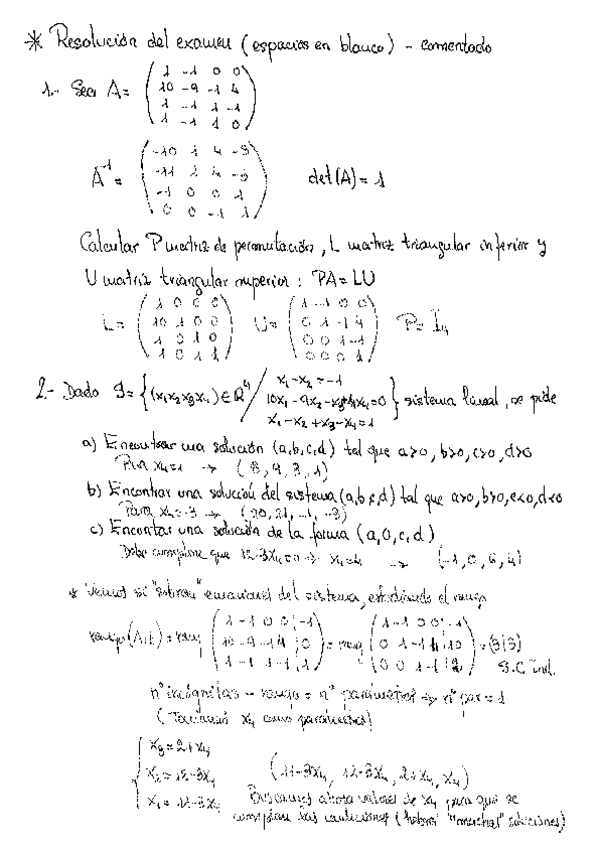 * Resolución del examen (espacios en blanco) - comentado
1.- Sea A = ( 1 -1 0 0
10 -9 -1 4
1 -1 1 -1
1 -1 1 0 )
A⁻¹ = ( -10 1 4 -3
-11 1 4 -3
-1 0 0 1
0 0 -1 1 ) det(A) = 1
Calcular P matriz de permutación, L matriz triangular inferior y
U matriz triangular superior : PA = LU
L = ( 1 0 0 0
10 1 0 0
1 0 1 0
1 0 1 1 ) U = ( 1 -1 0 0
0 1 -1 4
0 0 1 -1
0 0 0 1 ) P = I₄
2.- Dado S = { (x₁x₂x₃x₄) ∈ R⁴ / x₁-x₂ = -1
10x₁-9x₂-x₃+4x₄=0
x₁-x₂+x₃-x₄=1 } sistema lineal, se pide
a) Encontrar una solución (a,b,c,d) tal que a>0, b>0, c>0, d>0
Para x₄=1 → (8, 9, 3, 1)
b) Encontrar una solución del sistema (a,b,c,d) tal que a>0, b>0, c<0, d<0
Para x₄=-3 → (20, 21, -1, -3)
c) Encontrar una solución de la forma (a,0,c,d)
Debe cumplirse que 12-3x₄=0 → x₄=4 → (-1, 0, 6, 4)
* Vemos si "sobran" ecuaciones del sistema, estudiando el rango
rango(A|b) = rang ( 1 -1 0 0 | -1
10 -9 -1 4 | 0
1 -1 1 -1 | 1 ) = rang ( 1 -1 0 0 | -1
0 1 -1 4 | 10
0 0 1 -1 | 2 ) = (3|3)
S.C. ind.
nº incógnitas - rango = nº parámetros → nº par = 1
(Tomamos x₄ como parámetro)
{ x₃ = 2+x₄
x₂ = 12-3x₄ (11-3x₄, 12-3x₄, 2+x₄, x₄)
x₁ = 11-3x₄ Buscamos ahora valores de x₄ para que se
cumplan las condiciones (habrá "muchas" soluciones)